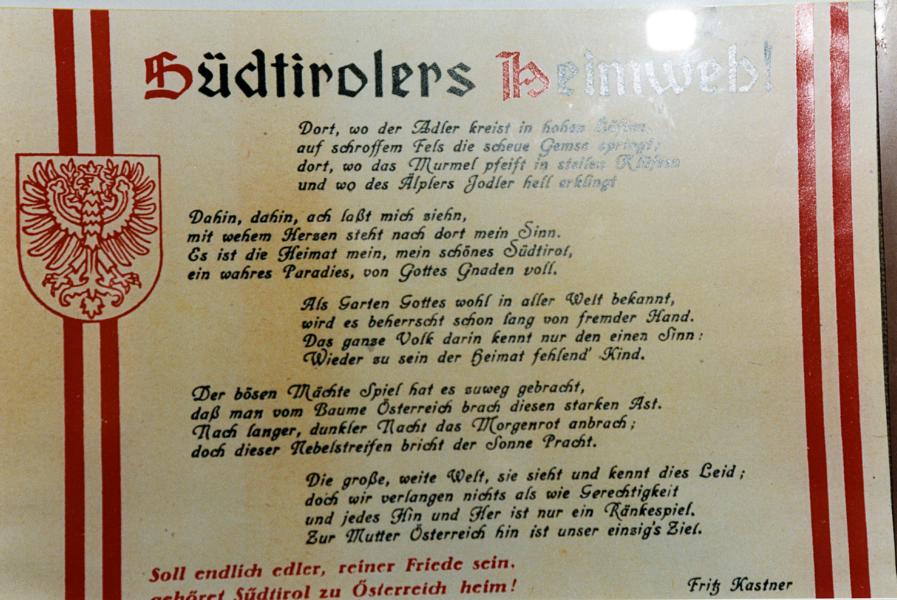 Südtirolers Heimweh!
Dort, wo der Adler kreist in hohen
auf schroffem Fels die scheue Gemse springt;
dort, wo das Murmel pfeift in steilen Klüften
und wo des Älplers Jodler hell erklingt
Dahin, dahin, ach laßt mich ziehn,
mit wehem Herzen steht nach dort mein Sinn.
Es ist die Heimat mein, mein schönes Südtirol,
ein wahres Paradies, von Gottes Gnaden voll.
Als Garten Gottes wohl in aller Welt bekannt,
wird es beherrscht schon lang von fremder Hand.
Das ganze Volk darin kennt nur den einen Sinn:
Wieder zu sein der Heimat fehlend' Kind.
Der bösen Mächte Spiel hat es zuweg gebracht,
daß man vom Baume Österreich brach diesen starken Ast.
Nach langer, dunkler Nacht das Morgenrot anbrach;
doch dieser Nebelstreifen bricht der Sonne Pracht.
Die große, weite Welt, sie sieht und kennt dies Leid;
doch wir verlangen nichts als wie Gerechtigkeit
und jedes Hin und Her ist nur ein Ränkespiel.
Zur Mutter Österreich hin ist unser einzig's Ziel.
Soll endlich edler, reiner Friede sein,
gehöret Südtirol zu Österreich heim!
Fritz Kastner